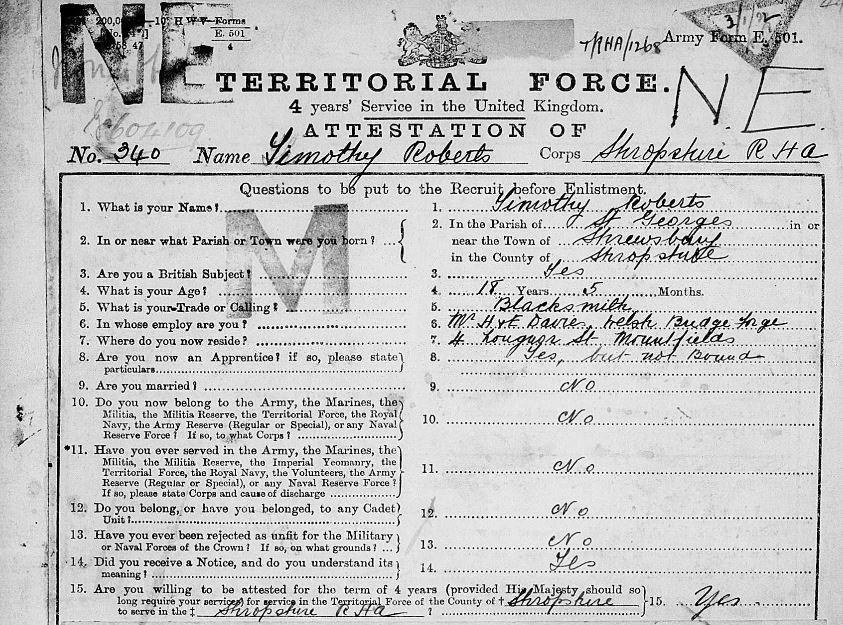 200,000 10 H W V Forms
E. 501
4
58 47
NE
T/RHA/1268
Army Form E. 501.
3/1/12
TERRITORIAL FORCE.
4 years' Service in the United Kingdom.
N.E.
ATTESTATION OF
No. 340 Name Timothy Roberts Corps Shropshire R H A
Questions to be put to the Recruit before Enlistment.
M
1. What is your Name? 1. Timothy Roberts
2. In or near what Parish or Town were you born? ... 2. In the Parish of St Georges in or
near the Town of Shrewsbury
in the County of Shropshire
3. Are you a British Subject? 3. Yes
4. What is your Age? 4. 18 Years 5 Months.
5. What is your Trade or Calling? 5. Blacksmith
6. In whose employ are you? 6. Mr H & E Davies, Welsh Bridge Forge
7. Where do you now reside? 7. 4 St Mountfields
8. Are you now an Apprentice? if so, please state 8. Yes, but not Bound
particulars
9. Are you married? 9. No
10. Do you now belong to the Army, the Marines, the 10. No
Militia, the Militia Reserve, the Territorial Force, the Royal
Navy, the Army Reserve (Regular or Special), or any Naval
Reserve Force? If so, to what Corps?
*11. Have you ever served in the Army, the Marines, the 11. No
Militia, the Militia Reserve, the Imperial Yeomanry, the
Territorial Force, the Royal Navy, the Volunteers, the Army
Reserve (Regular or Special), or any Naval Reserve Force?
If so, please state Corps and cause of discharge
12. Do you belong, or have you belonged, to any Cadet 12. No
Unit?
13. Have you ever been rejected as unfit for the Military 13. No
or Naval Forces of the Crown? If so, on what grounds? ...
14. Did you receive a Notice, and do you understand its 14. Yes
meaning?
15. Are you willing to be attested for the term of 4 years (provided His Majesty should so
long require your services) for service in the Territorial Force of the County of † Shropshire 15. Yes
to serve in the ‡ Shropshire R H A ?